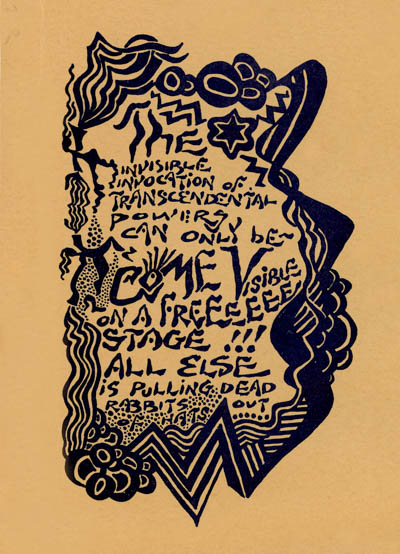 THE
INVISIBLE
INVOCATION OF
TRANSCENDENTAL
POWERS,
CAN ONLY BE-
COME VISIBLE
ON A FREEEEEEE,
STAGE !!!
ALL ELSE
IS PULLING DEAD
RABBITS OUT
OF HATS